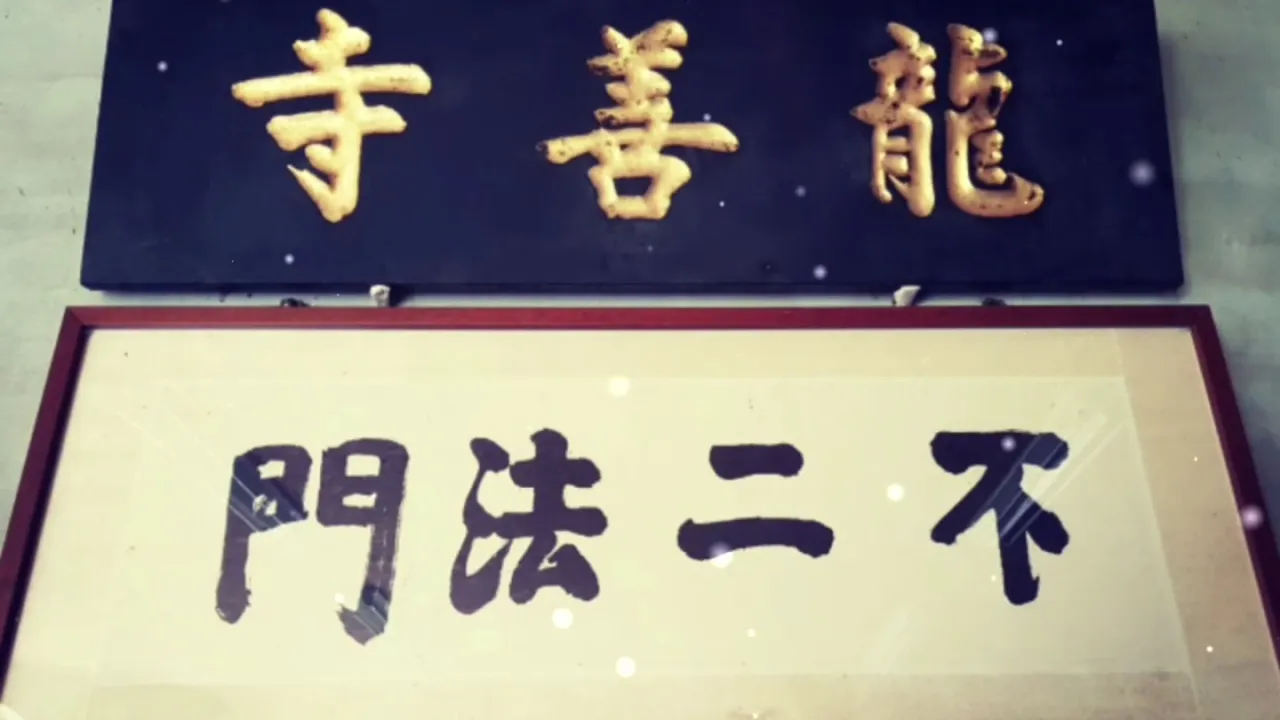 龍善寺
不二法門